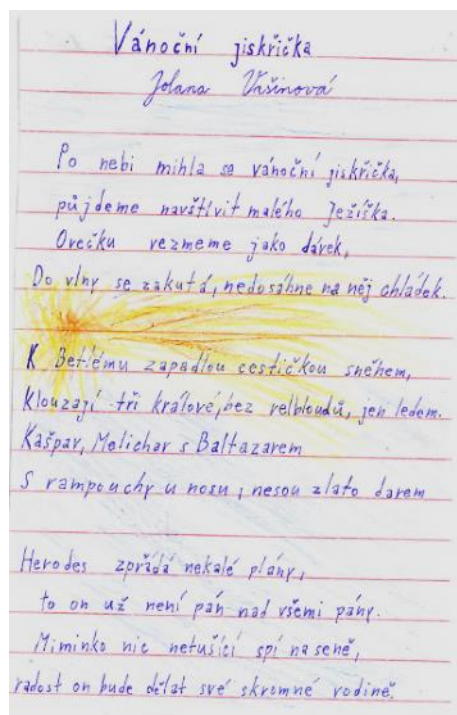 Vánoční jiskřička
Jolana Vašinová
Po nebi mihla se vánoční jiskřička,
půjdeme navštívit malého Ježíška.
Ovečku vezmeme jako dárek,
Do vlny se zakutá, nedosáhne na něj chládek.
K Betlému zapadlou cestičkou sněhem,
Klouzají tři králové, bez velbloudů, jen ledem.
Kašpar, Melichar s Baltazarem
S rampouchy u nosu, nesou zlato darem
Herodes zpřádá nekalé plány,
to on už není pán nad všemi pány.
Miminko nic netušící spí na seně,
radost on bude dělat své skromné rodině.